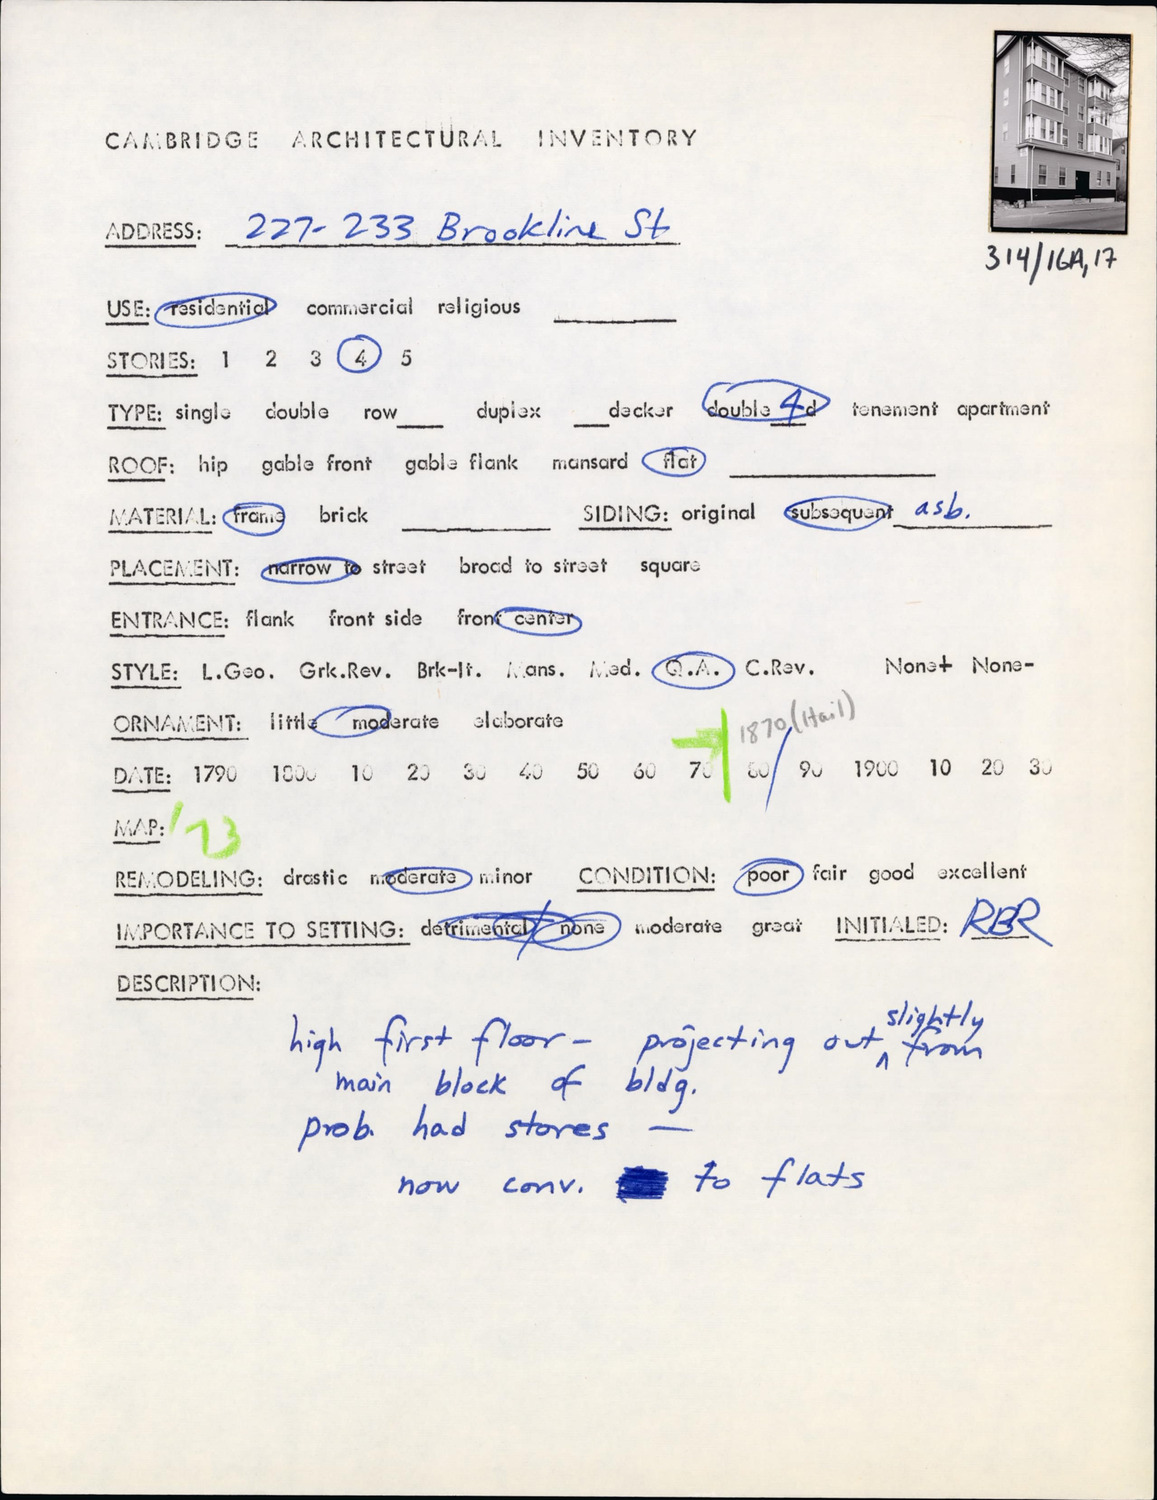 CAMBRIDGE ARCHITECTURAL INVENTORY
314/16A,17
ADDRESS: 227-233 Brookline St
USE: residential commercial religious
STORIES: 1 2 3 4 5
TYPE: single double row duplex decker double 4 d tenement apartment
ROOF: hip gable front gable flank mansard flat
MATERIAL: frame brick SIDING: original subsequent asb.
PLACEMENT: narrow to street broad to street square
ENTRANCE: flank front side front center
STYLE: L.Geo. Grk.Rev. Brk-It. Mans. Med. Q.A. C.Rev. None+ None-
ORNAMENT: little moderate elaborate
1870 (Hail)
DATE: 1790 1800 10 20 30 40 50 60 70 80 90 1900 10 20 30
MAP: '73
REMODELING: drastic moderate minor CONDITION: poor fair good excellent
IMPORTANCE TO SETTING: detrimental none moderate great INITIALED: RBR
DESCRIPTION:
high first floor - projecting out ^ slightly from
main block of bldg.
prob. had stores —
now conv. to flats